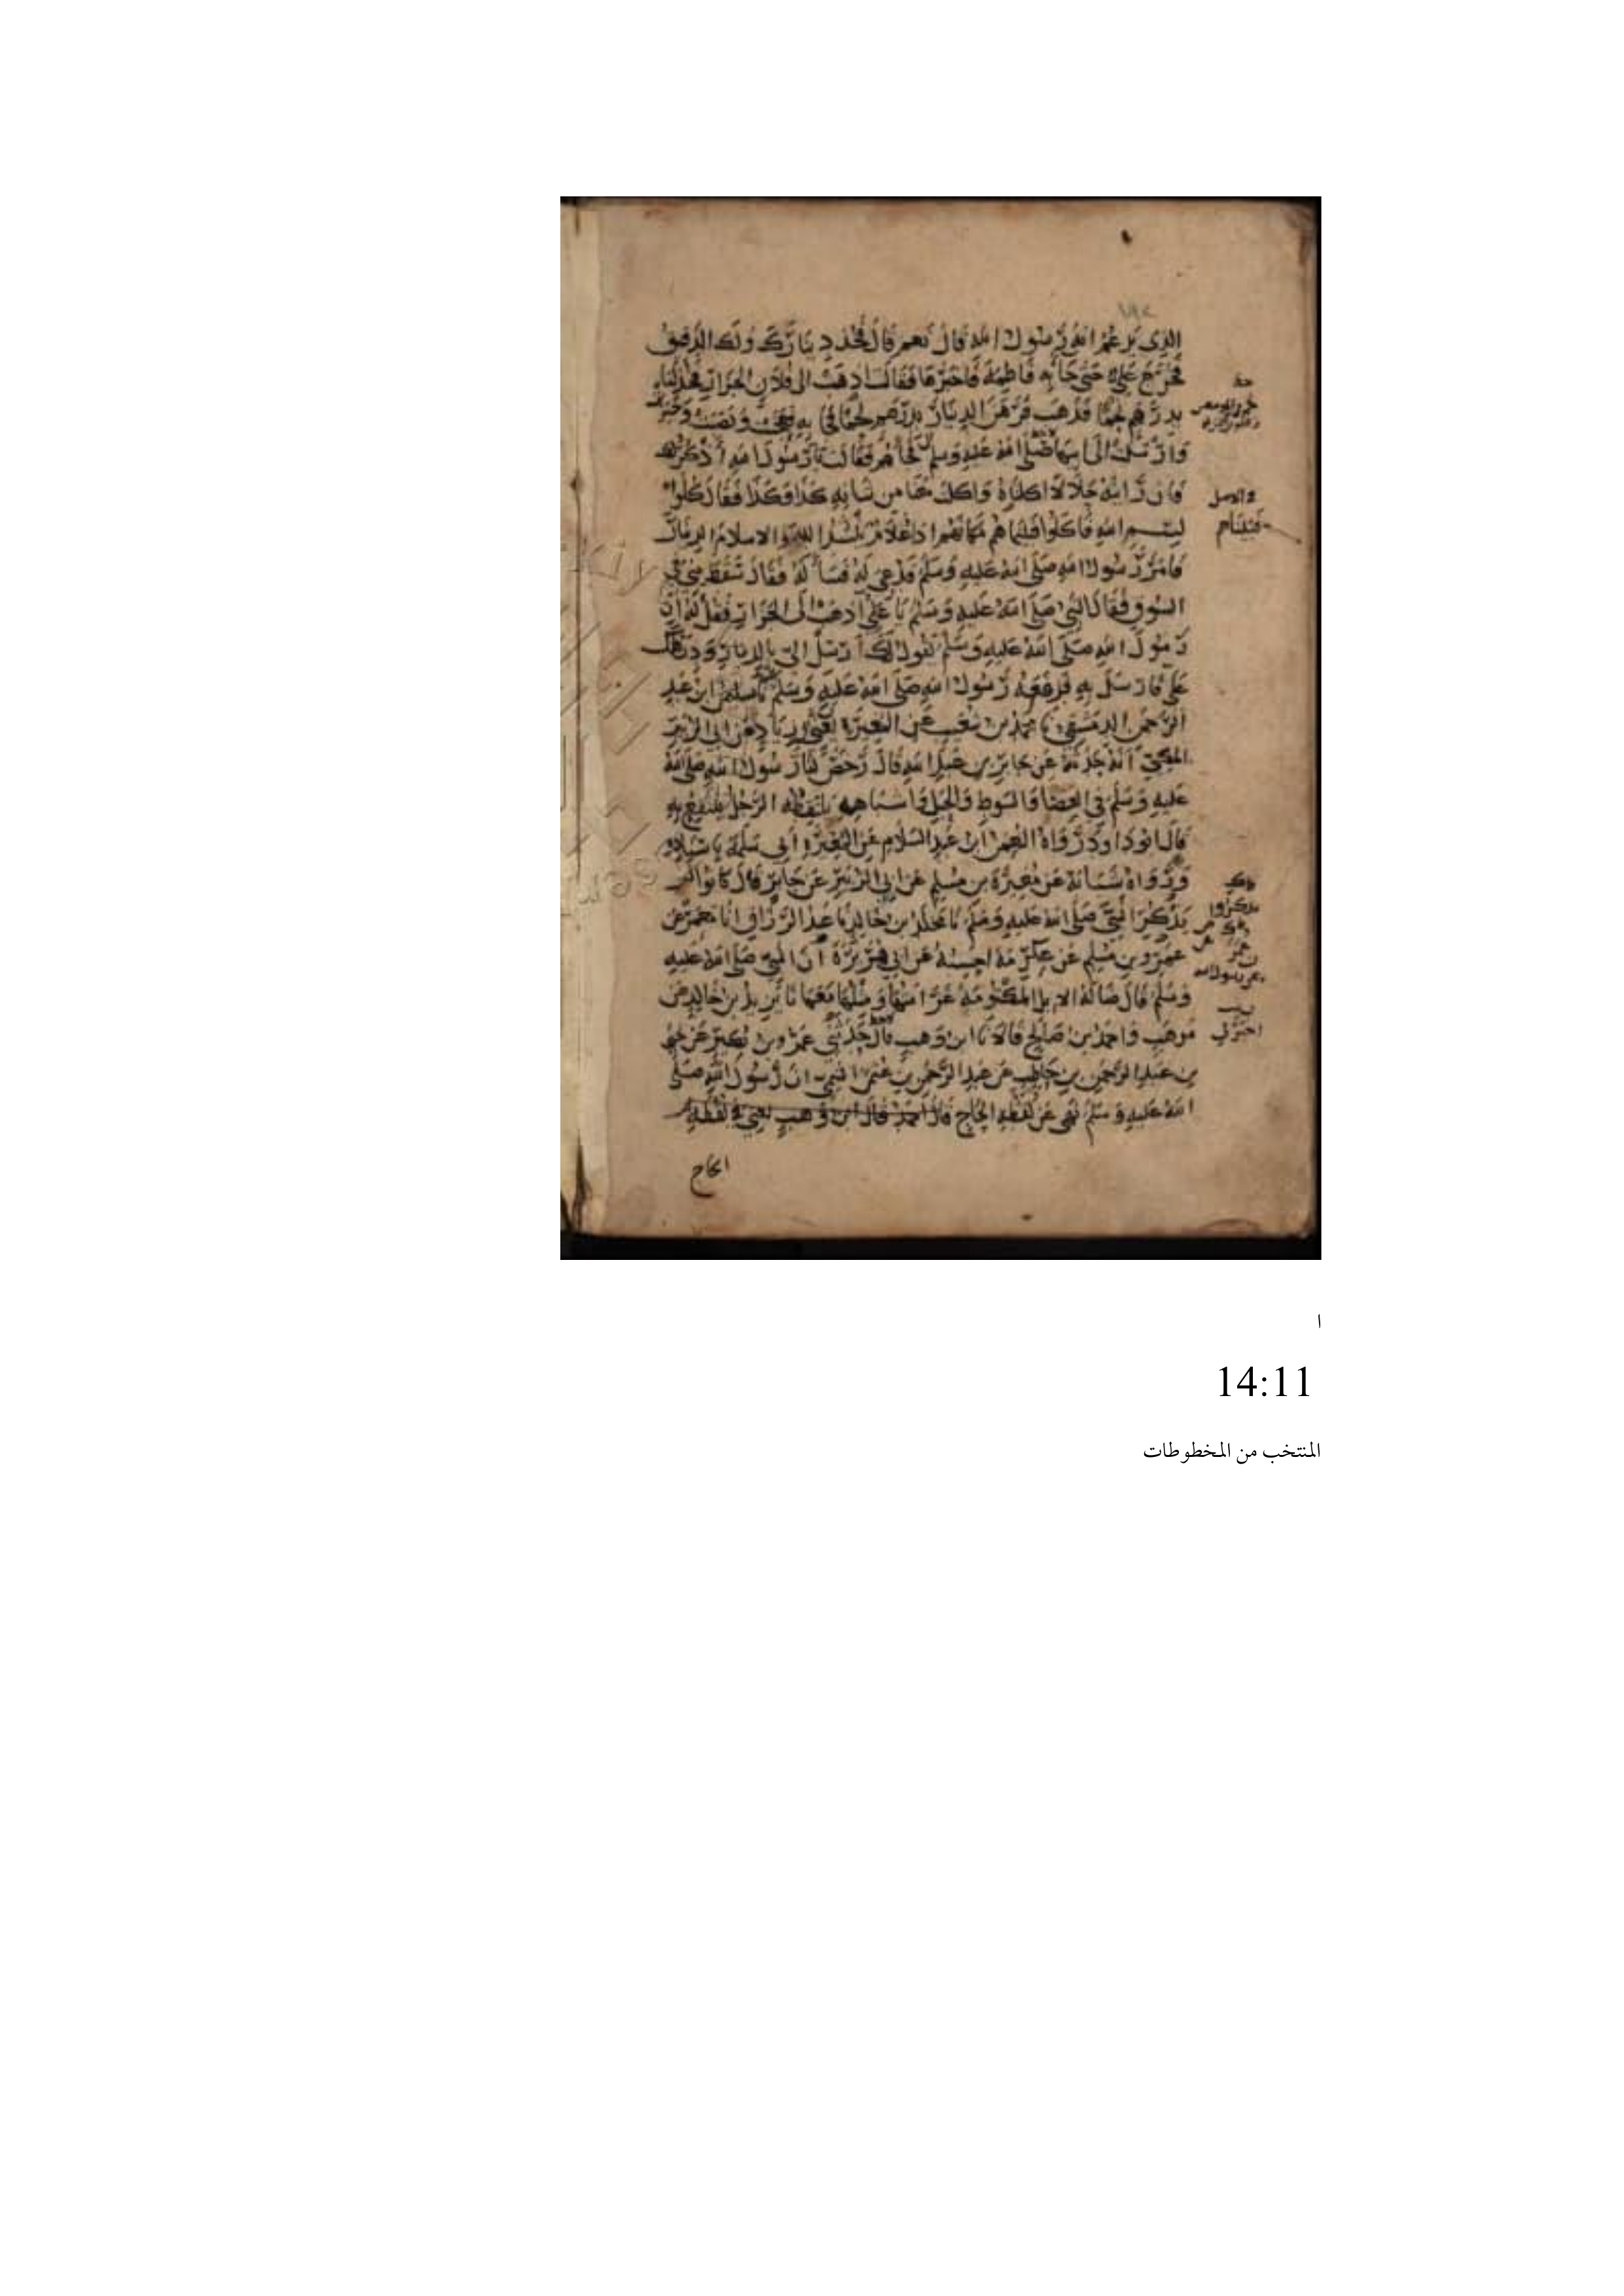 الذي يزعم انه رسول الله قال نعم قال فخذ دينارك ولك الدقيق
فخرج علي حتى جا به فاطمة فاخبرها فقالت اذهب الى فلان الجزار فخذ لنا
بدرهم لحما فذهب فرهن الدينار بدرهم لحم فجا به فعجنت ونصبت وخبزت
وارسلت الى ابيها صلى الله عليه وسلم فجاهم فقالت يا رسول الله أذكر لك
فان رايته حلالا اكلناه واكلت معنا من شانه كذا وكذا فقال كلوا
بسم الله فاكلوا فبينما هم مكانهم اذا غلام ينشد الله والاسلام الدينار
فامر رسول الله صلى الله عليه وسلم فدعي له فسأله فقال سقط مني في
السوق فقال النبي صلى الله عليه وسلم يا علي اذهب الى الجزار فقل له ان
رسول الله صلى الله عليه وسلم يقول لك ارسل الي بالدينار ودرهمك
علي فارسل به فدفعه رسول الله صلى الله عليه وسلم سليمان ابن عبد
الرحمن الدمشقي نا محمد بن شعيب عن المغيرة يعني بن زياد عن ابي الزبير
المكي انه حدثه عن جابر بن عبد الله قال رخص لنا رسول الله صلى الله
عليه وسلم في العصا والسوط والحبل واشباهه يلتقطه الرجل ينتفع به
قال ابو داود رواه النعمن ابن عبد السلام عن المغيرة ابي سلمة باسناده
ورواه شبابة عن مغيرة بن مسلم عن ابي الزبير عن جابر قال كانوا لم
يذكر النبي صلى الله عليه وسلم نا مخلد بن خالد نا عبد الرزاق انا معمر عن
عمرو بن مسلم عن عكرمة احسبه عن ابي هريرة ان النبي صلى الله عليه
وسلم قال ضالة الابل المكتومة غرامتها ومثلها معها نا يزيد بن خالد بن
موهب واحمد بن صالح قالا نا ابن وهب قال حدثني عمرو بن بكير عن يحيى
بن عبد الرحمن بن حاطب عن عبد الرحمن بن عثمن التيمي ان رسول الله صلى
الله عليه وسلم نهى عن لقطة الحاج قال احمد قال ابن وهب يعني في لقطة
الحاج
ا
14:11
المنتخب من المخطوطات